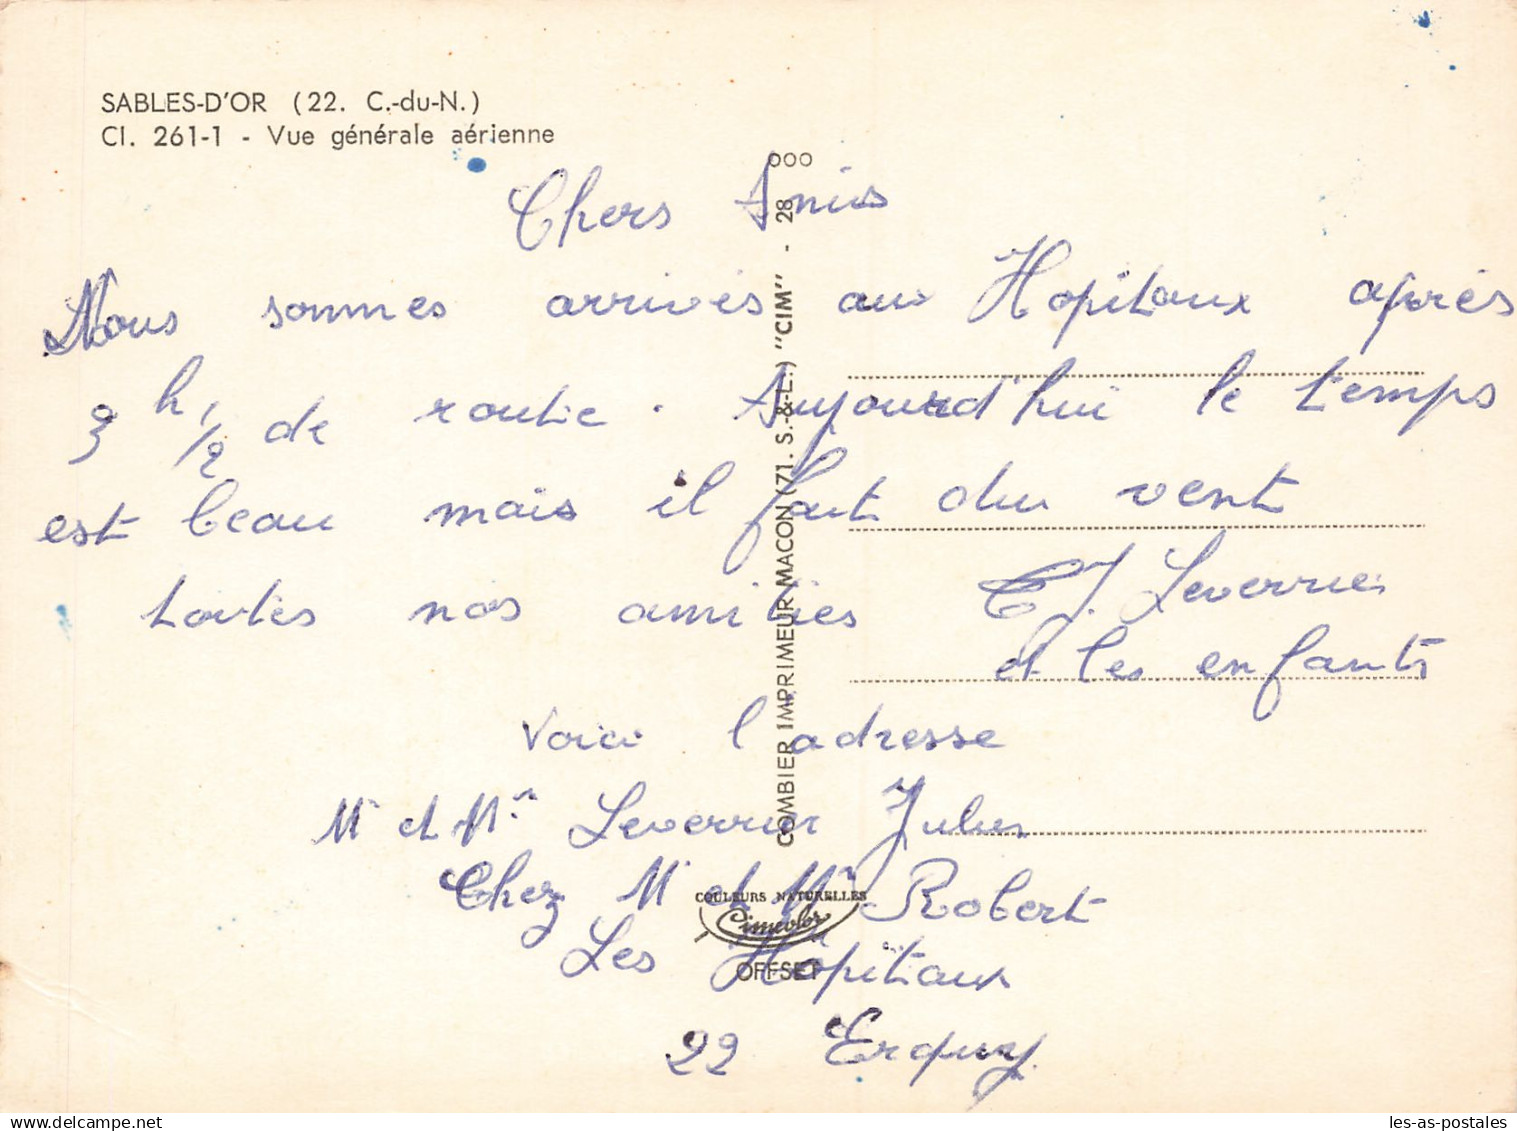 SABLES-D'OR (22. C.-du-N.)
Cl. 261-1 - Vue générale aérienne
Chers Amis
Nous sommes arrivés aux Hopitaux après
3 h 1/2 de route. Aujourd'hui le temps
est beau mais il fait du vent
toutes nos amitiés J. Leverrier
et les enfants
Voici l'adresse
Mr et Mme Leverrier Jules
Chez Mr et Mme Robert
Les Hôpitaux
22 Erquy
COMBIER IMPRIMEUR MACON (71. S.-&-L.) "CIM" - 28 000
COULEURS NATURELLES
Cimcolor
OFFSET
les-as-postales